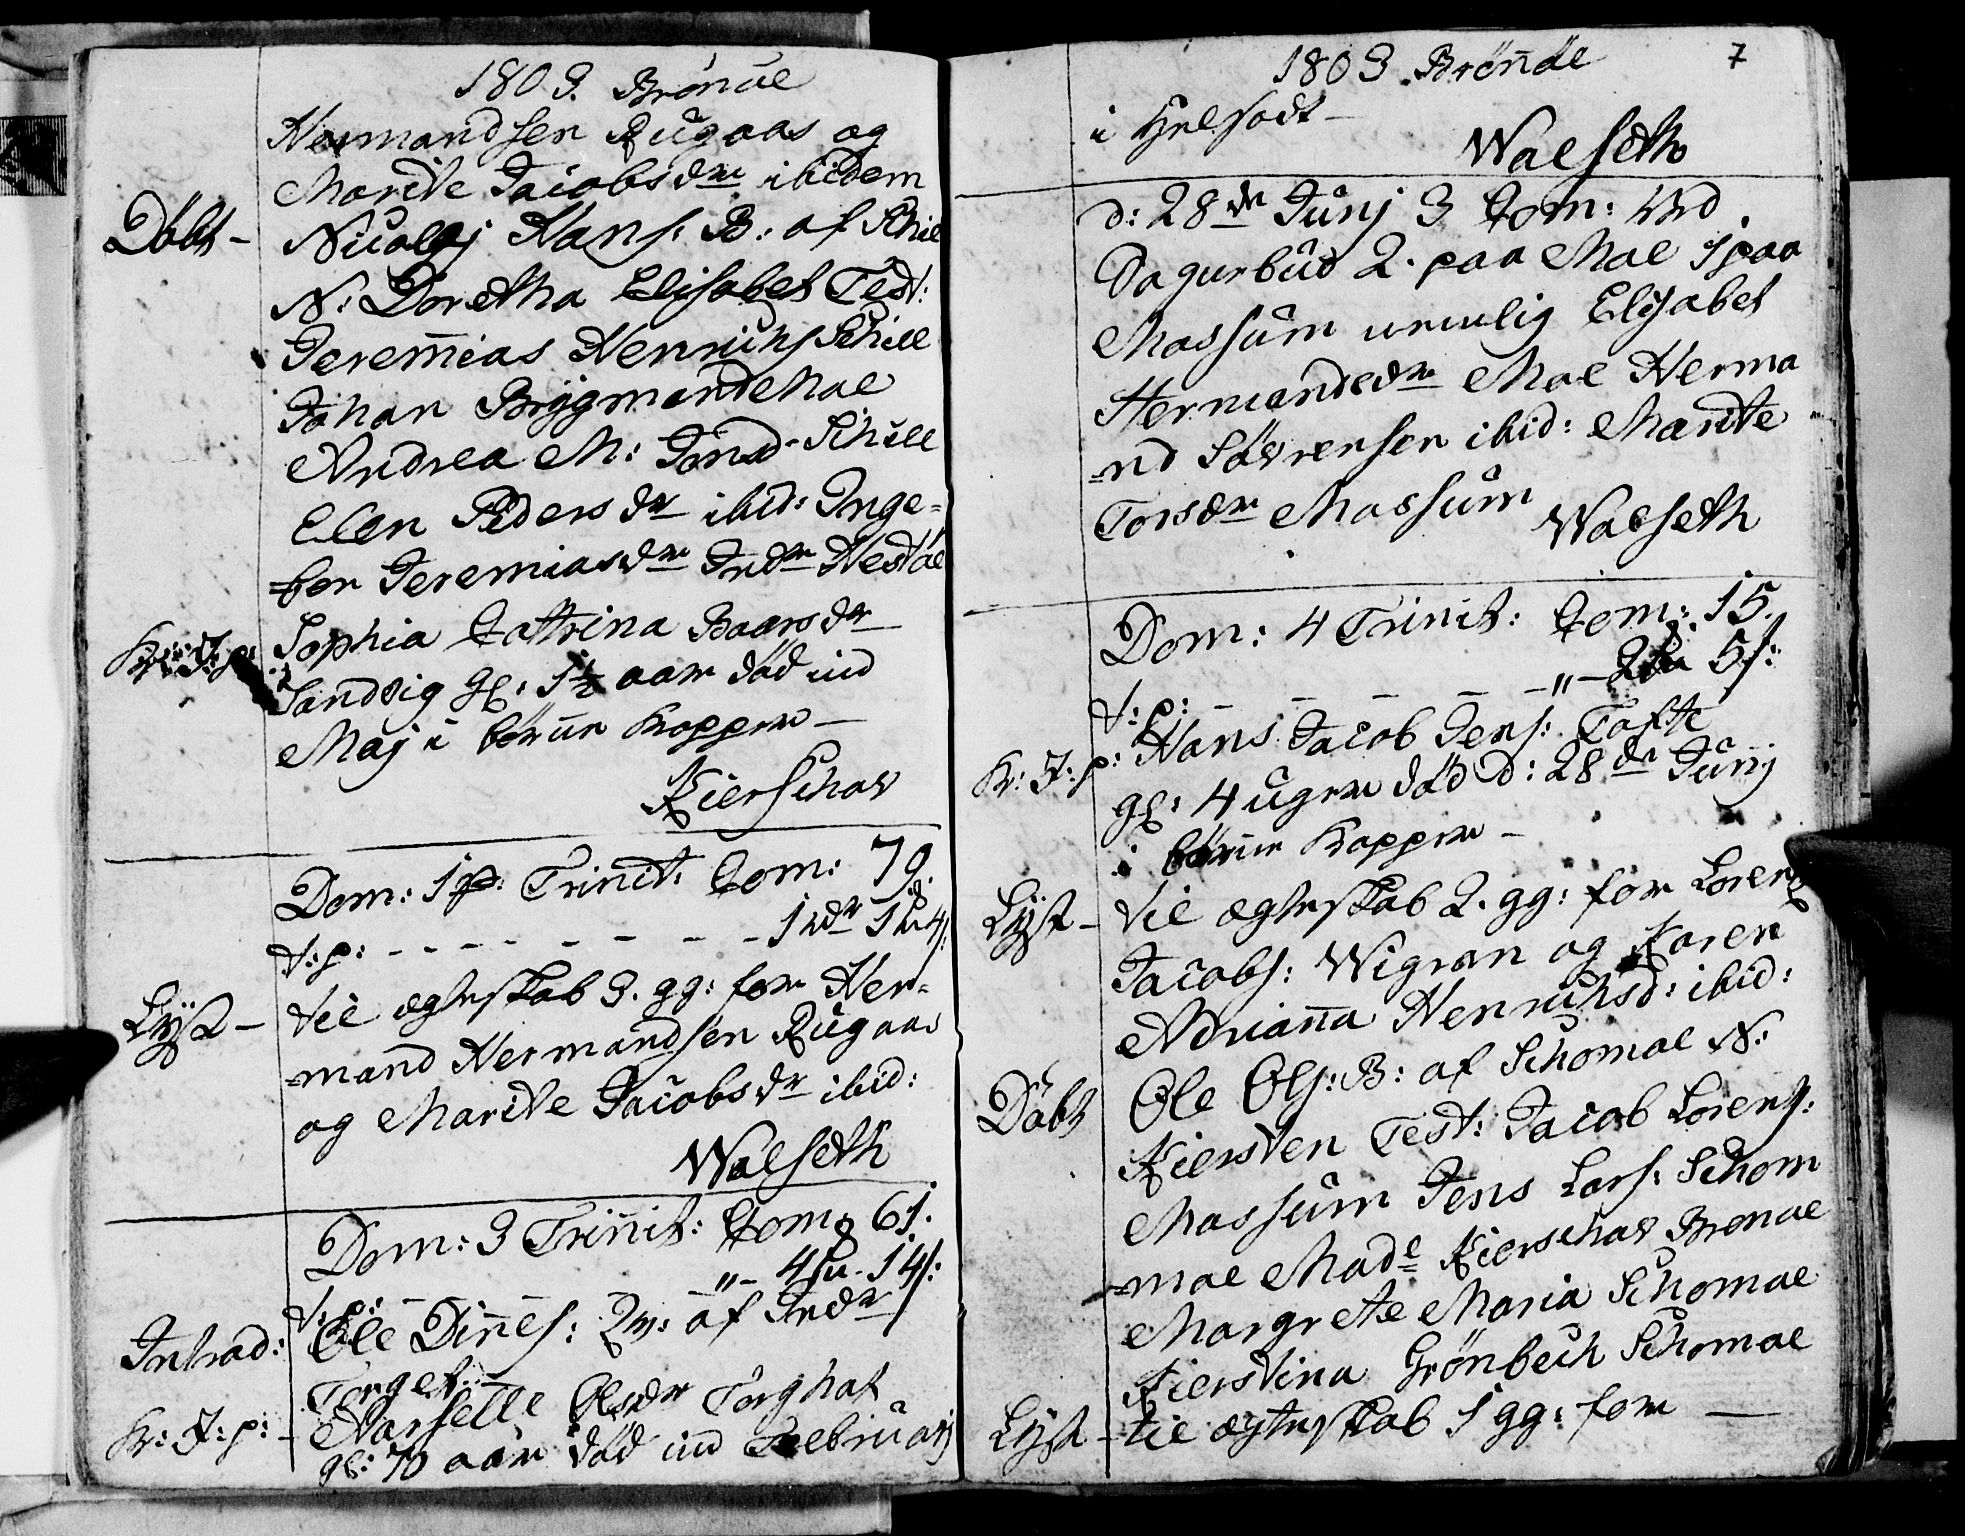 1803. Brönöe
Hermandsen Rugaas og
Marite Jacobsdr ibidem
Döbt - Nicolaj Hans: B: af Schil
N: Doretha Elisabet Test:
Jeremias Henrichs Schill
Johan Brÿgmand Moe
Andrea M: Jensd. Schill
Elen Peders dr ibid: Inge-
bor Jeremiasdr Indr Hestöe
Kr: J: p: Sophia Cattrina Baarsdr
Sandvig gl: 1½ aar död ud
Maj i börne kopper -
Kierschov
Dom: 1 p: Trinit: Com: 79.
t:p: - - - - - - - 1 rdr 1 4s:
Lÿst - til ægteskab 3. gg: for Her-
mand Hermandsen Rugaas
og Marite Jacobs dr ibid:
Walseth
Dom: 3 Trinit: Com: 61.
t:p: - - - „ - 4 14s:
Introd: Ole Dines: Qv: af Indr
Torget:
Kr: J: p: - Olsdr Torghat
gl: 70 aar död ud Februarj
1803 Brönöe 7
i Helsodt -
Walseth
d: 28de Junj 3 Com: ved
Sognebud 2. paa Moe 1 paa
Mossum nemlig Elisabet
Hermandsdr Moe Herma
nd Sövrensen ibid: Marite
Torsdr Mossum
Walseth
Dom: 4 Trinit: Com: 15.
t:p: - - - - „ - 5s:
Kr: J: p: Hans Jacob Jens: Tofte
gl: 4 uger död d: 28de Junj
i börne kopper -
Lÿst - til ægteskab 2. gg: for Lorentz
Jacobs: Wigran og Karen
Adrianna Henrichsd: ibid:
Döbt Ole Ols: B: af Schomoe N:
Kiersten Test: Jacob Lorens:
Mossum Jens Lars: Schom
moe Made Kierschov Brönöe
Margrete Maria Schomoe
Kierstina Grönbech Schomoe
Lÿst - til ægteskab 1 gg: for -